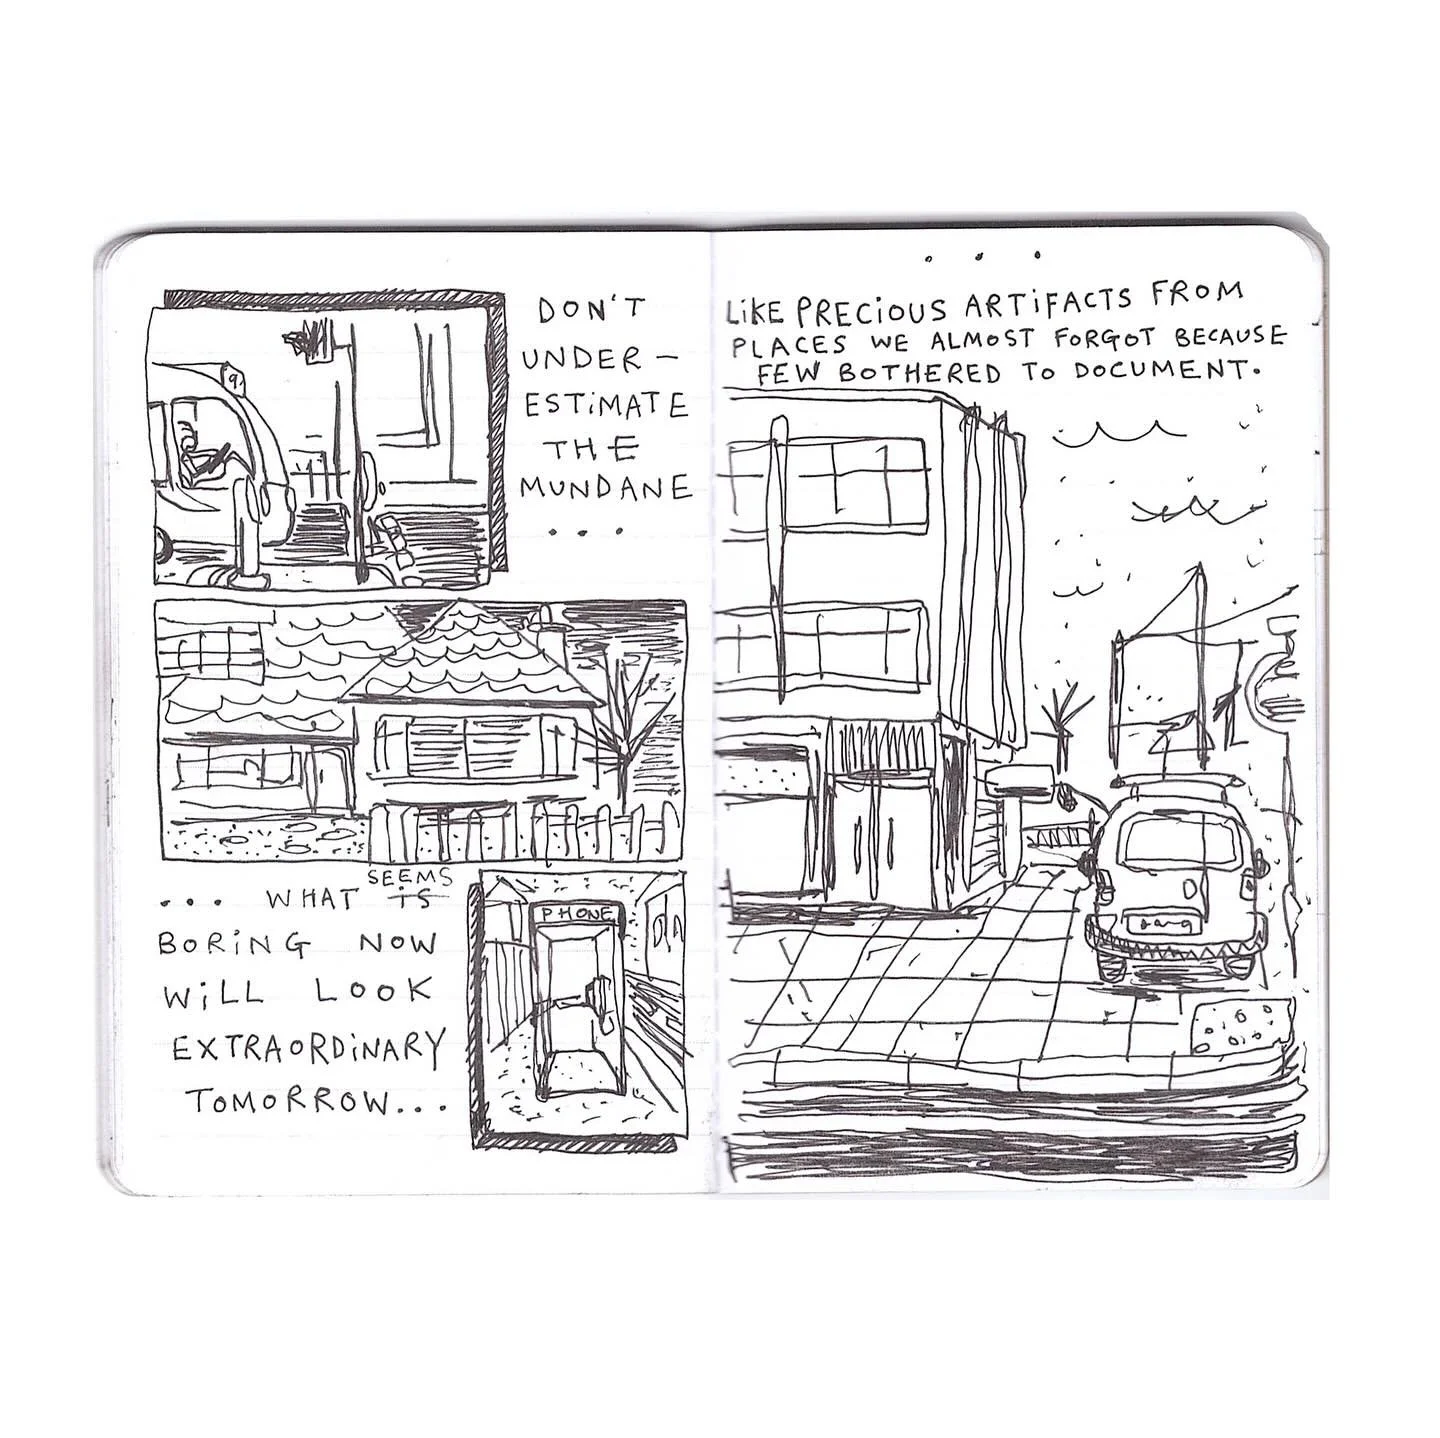 DON'T
UNDER-
ESTiMATE
THE
MUNDANE
...
... WHAT SEEMS iS
BORiNG NOW
WiLL LOOK
EXTRAORDiNARY
TOMORROW...
PHONE
...
LiKE PRECiOUS ARTiFACTS FROM
PLACES WE ALMOST FORGOT BECAUSE
FEW BOTHERED TO DOCUMENT.